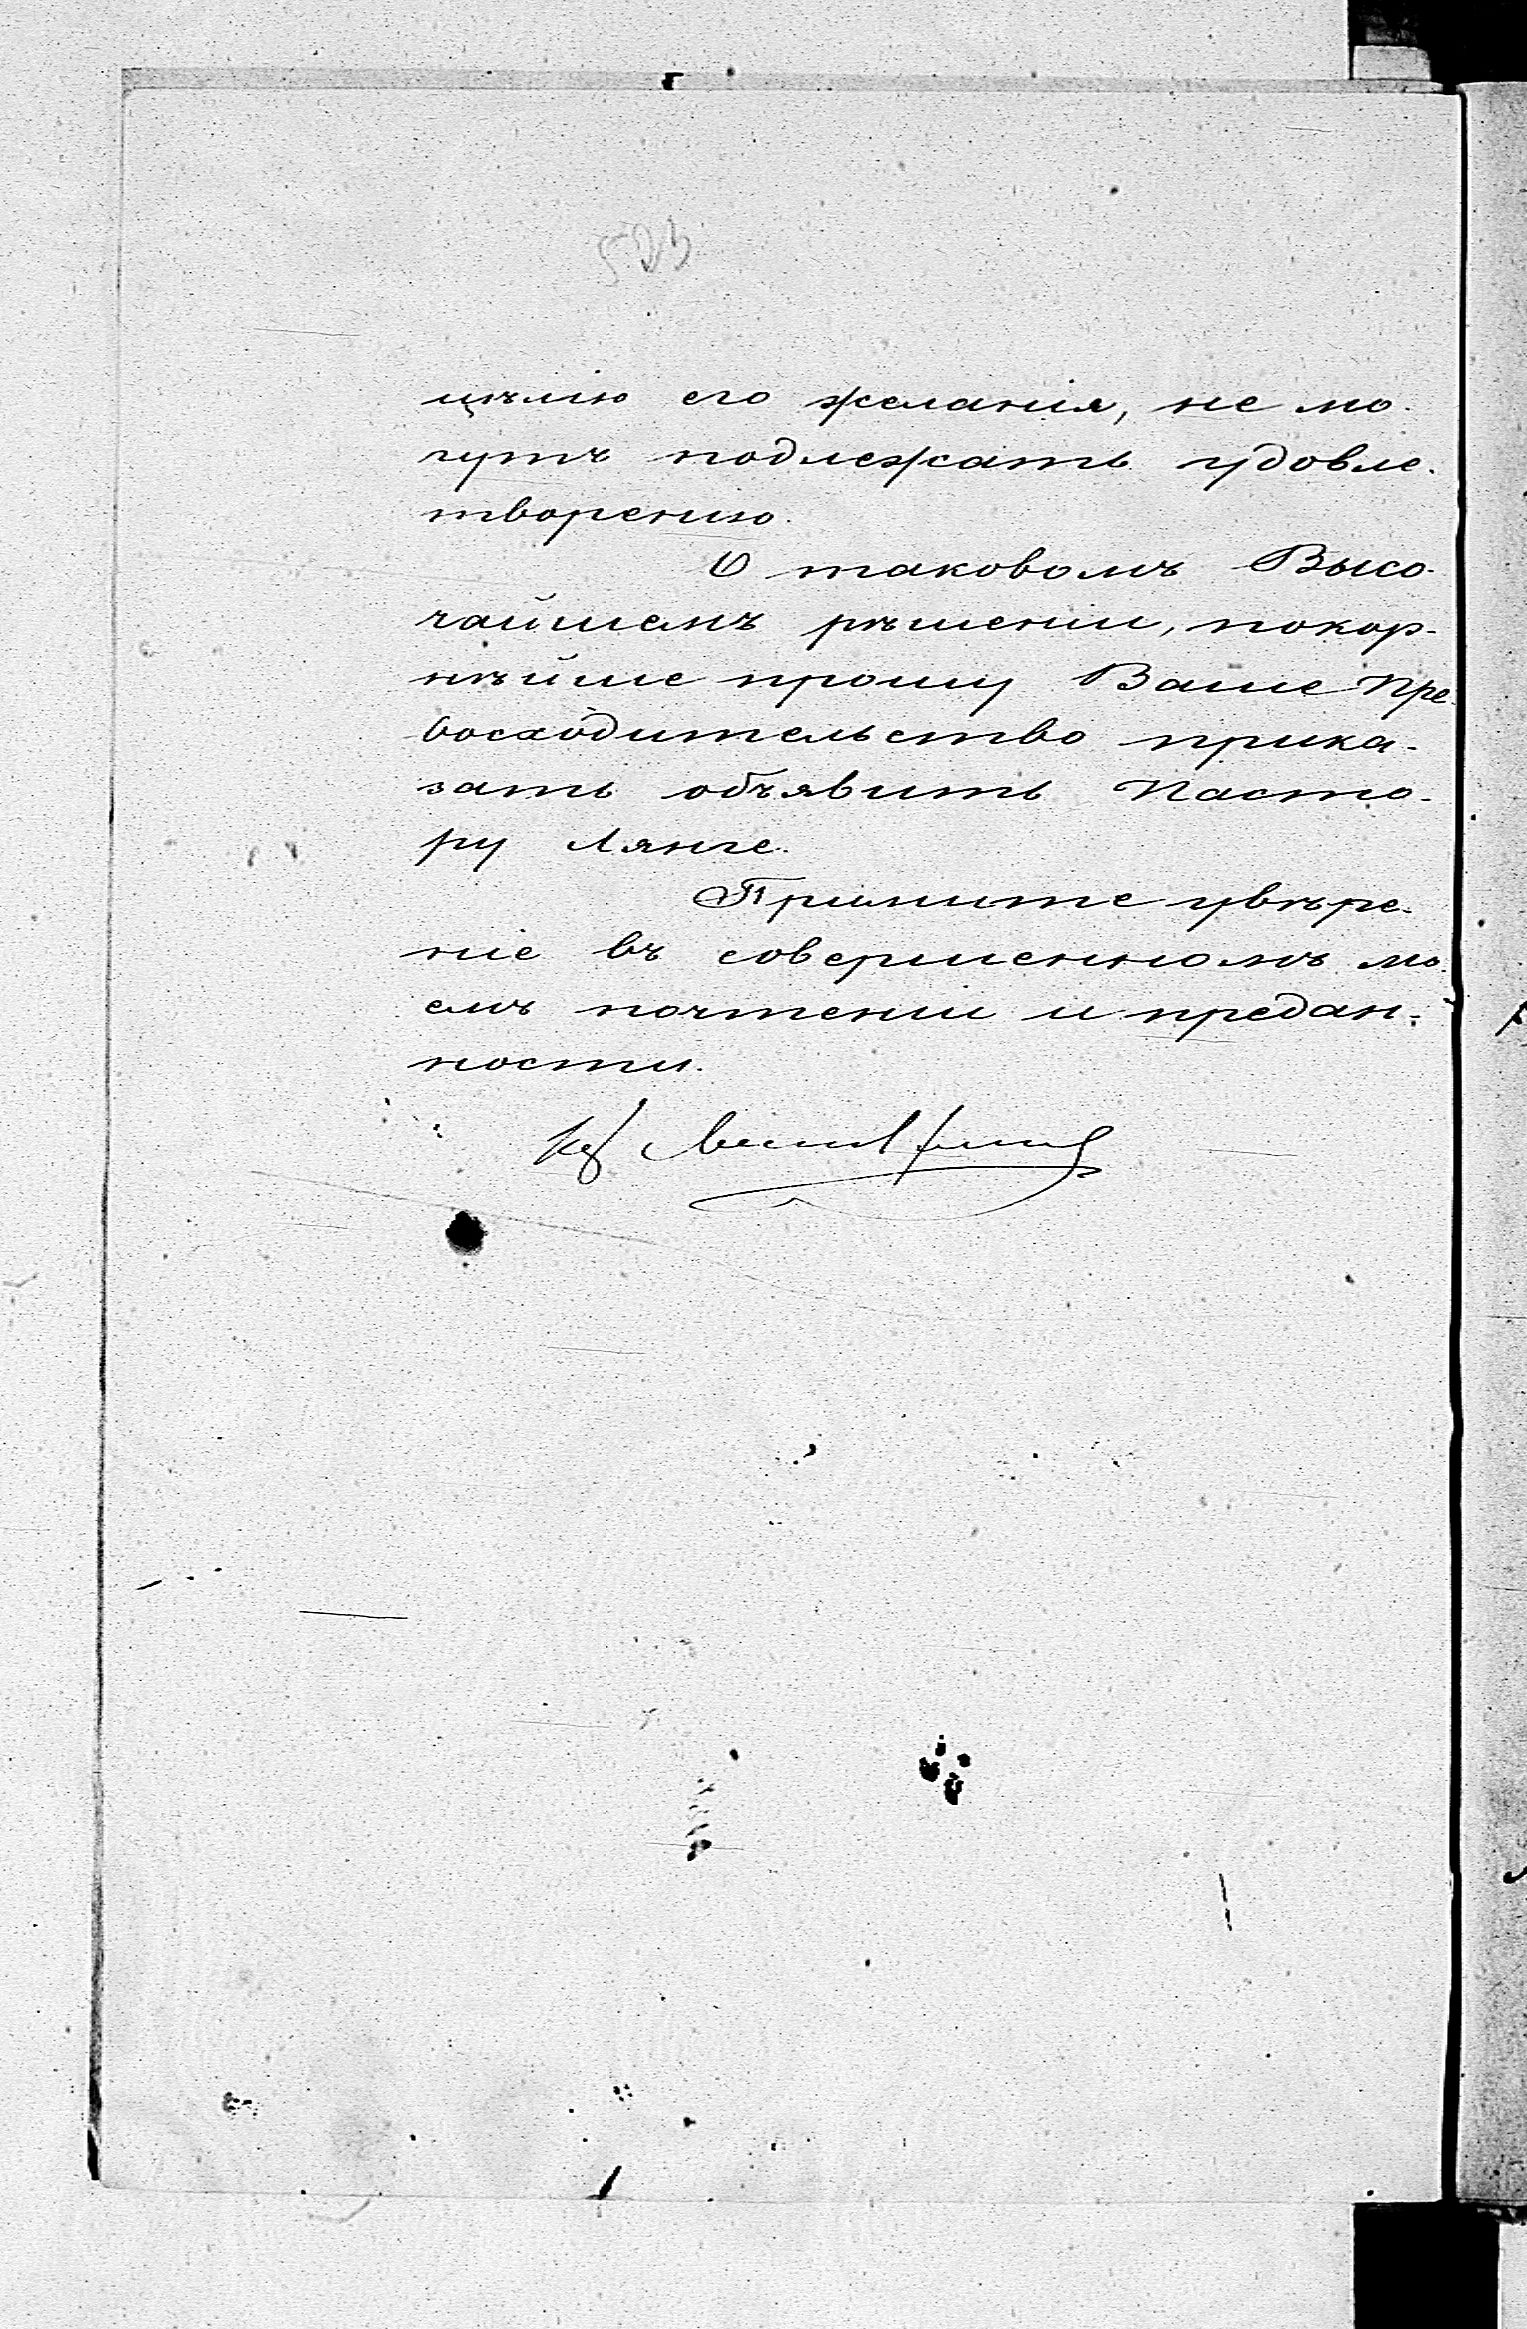 523
цѣлію его желанія, не мо-
гутъ подлежать удовле-
творенію.
О таковомъ Высо-
чайшемъ рѣшеніи, покор-
нѣйше прошу Ваше Пре-
восходительство прика-
зать объявить Пасто-
ру Лянге.
Примите увѣре-
ніе въ совершенномъ мо-
емъ почтеніи и предан-
ности.